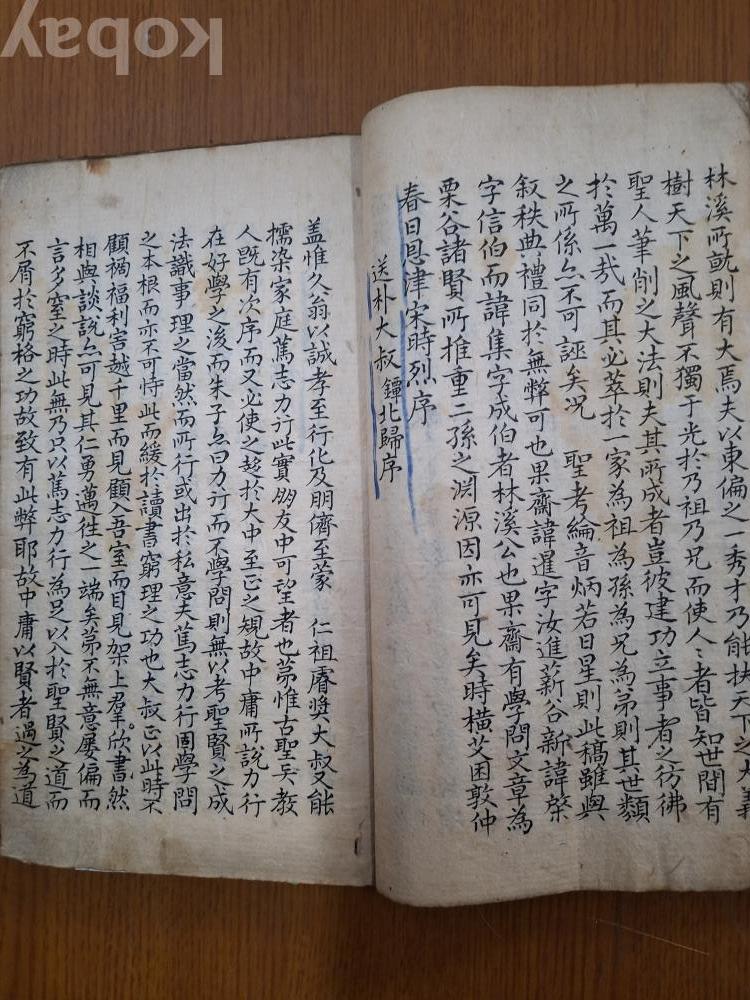 kobay
林溪所就則有大焉夫以東偏之一秀才乃能扶天下之大義
樹天下之風聲不獨于光於乃祖乃兄而使人々者皆知世間有
聖人筆削之大法則夫其所成者豈彼建功立事者之彷彿
於萬一哉而其必萃於一家為祖為孫為兄為弟則其世類
之所係亦不可誣矣況 聖考綸音炳若日星則此稿雖與
叙秩典禮同於無弊可也果齋諱暹字汝進薪谷新諱棨
字信伯而諱集字成伯者林溪公也果齋有學問文章為
栗谷諸賢所推重二孫之淵源因亦可見矣時橫艾困敦仲
春日恩津宋時烈序
送朴大叔鐔北歸序
盖惟久翁以誠孝至行化及朋儕至蒙 仁祖睿奬大叔又能
擩染家庭篤志力行此實朋友中可望者也第惟古聖矣教
人既有次序而又必使之趍於大中至正之規故中庸所說力行
在好學之後而朱子亦曰力行而不學問則無以考聖賢之成
法識事理之當然而所行或出於私意夫篤志力行固學問
之本根而亦不可恃此而緩於讀書窮理之功也大叔正以此時不
顧禍福利害越千里而見顧入吾室而目見架上羣書欣然
相與談說亦可見其仁勇邁徃之一端矣第不無意屢偏而
言多窒之時此無乃只以篤志力行為足以入於聖賢之道而
不屑於窮格之功故致有此弊耶故中庸以賢者過之為道